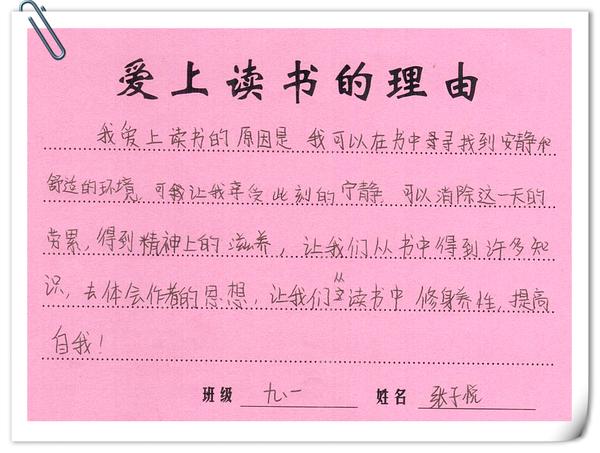 爱上读书的理由
我爱上读书的原因是 我可以在书中寻找到安静和
舒适的环境,可我让我享受此刻的宁静 可以消除这一天的
劳累,得到精神上的滋养,让我们从书中得到许多知
识,去体会作者的思想,让我们从读书中 修身养性,提高
自我!
班级 九.一 姓名 张子悦